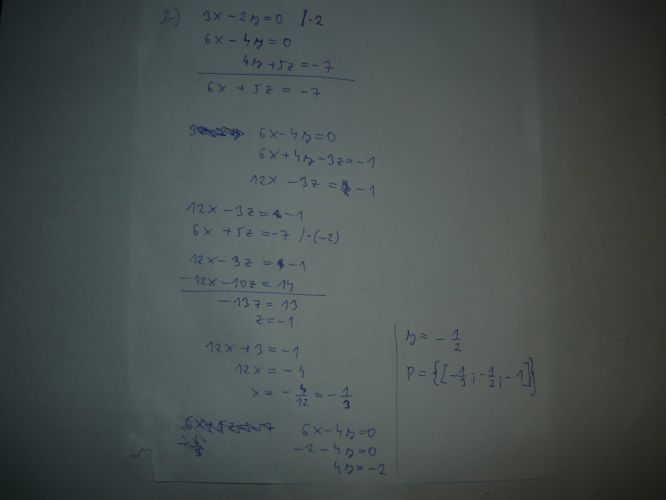 b) 3x - 2y = 0 /·2
6x - 4y = 0
4y + 5z = -7
6x + 5z = -7
6x - 4y = 0
6x + 4y - 3z = -1
12x - 3z = -1
12x - 3z = -1
6x + 5z = -7 /·(-2)
12x - 3z = -1
-12x - 10z = 14
-13z = 13
z = -1
12x + 3 = -1
12x = -4
x = -4/12 = -1/3
6x - 4y = 0
-2 - 4y = 0
4y = -2
y = -1/2
P = {[-1/3; -1/2; -1]}